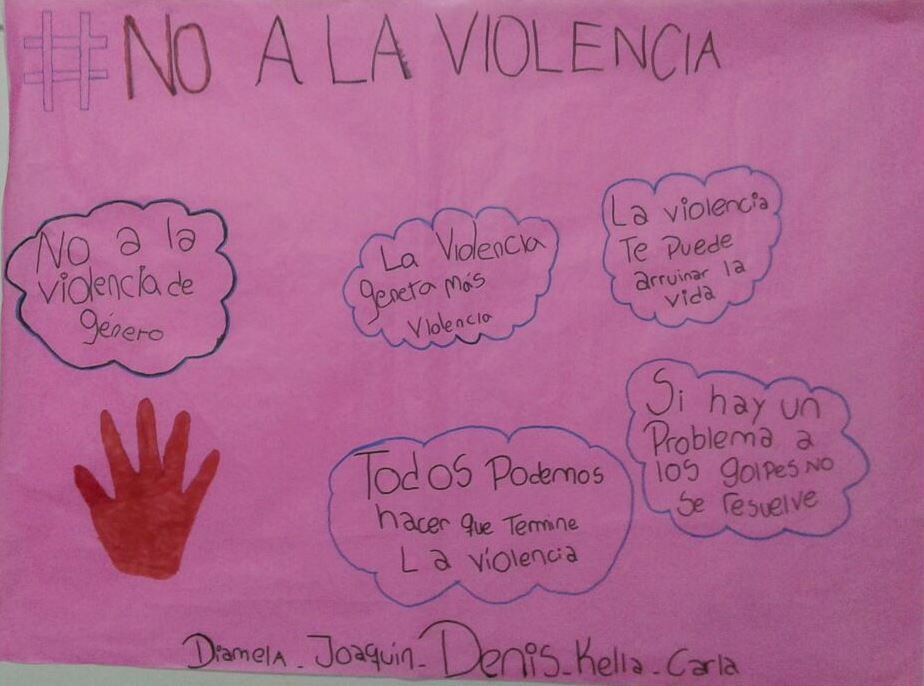 #NO A LA VIOLENCIA
No a la
violencia de
género
La Violencia
genera más
Violencia
La violencia
Te puede
arruinar la
vida
Si hay un
Problema a
los golpes No
Se resuelve
Todos Podemos
hacer que Termine
La violencia
Diamela - Joaquín - Denis - Kella - Carla